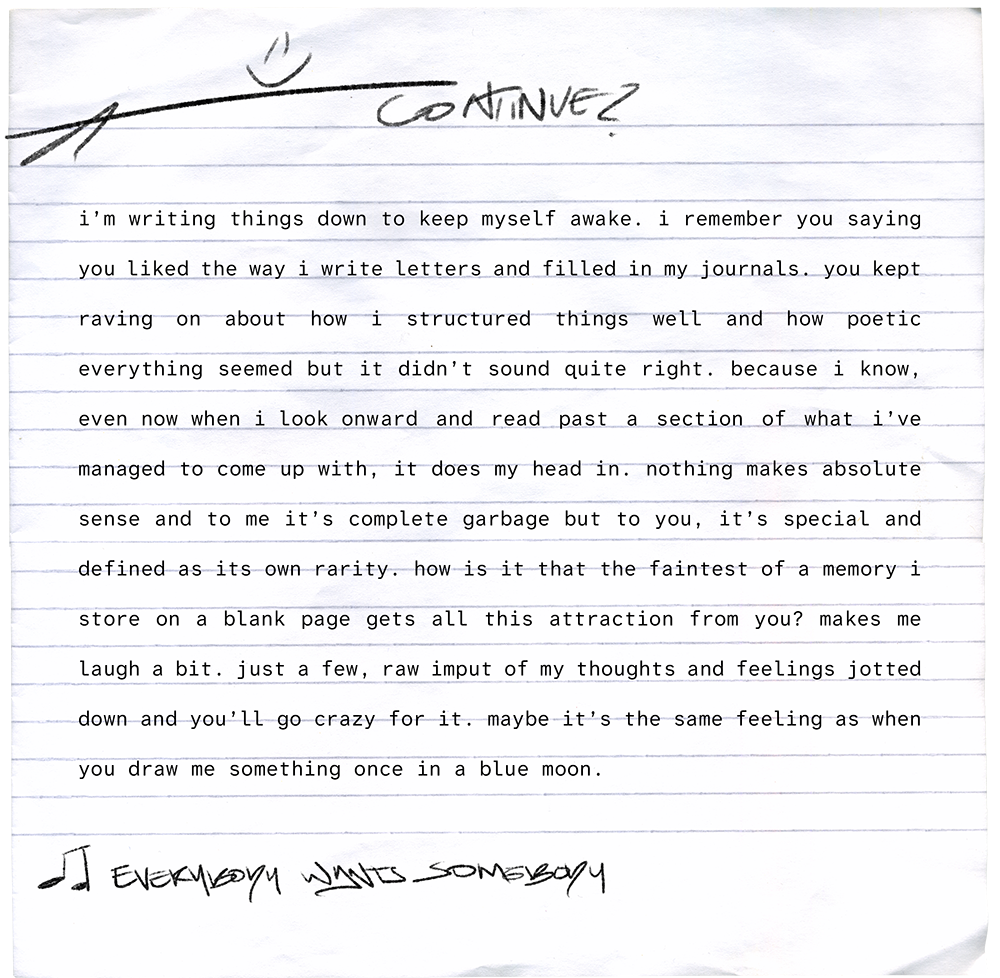 CONTINUE?
i’m writing things down to keep myself awake. i remember you saying
you liked the way i write letters and filled in my journals. you kept
raving on about how i structured things well and how poetic
everything seemed but it didn’t sound quite right. because i know,
even now when i look onward and read past a section of what i’ve
managed to come up with, it does my head in. nothing makes absolute
sense and to me it’s complete garbage but to you, it’s special and
defined as its own rarity. how is it that the faintest of a memory i
store on a blank page gets all this attraction from you? makes me
laugh a bit. just a few, raw imput of my thoughts and feelings jotted
down and you’ll go crazy for it. maybe it’s the same feeling as when
you draw me something once in a blue moon.
EVERYBODY WANTS SOMEBODY